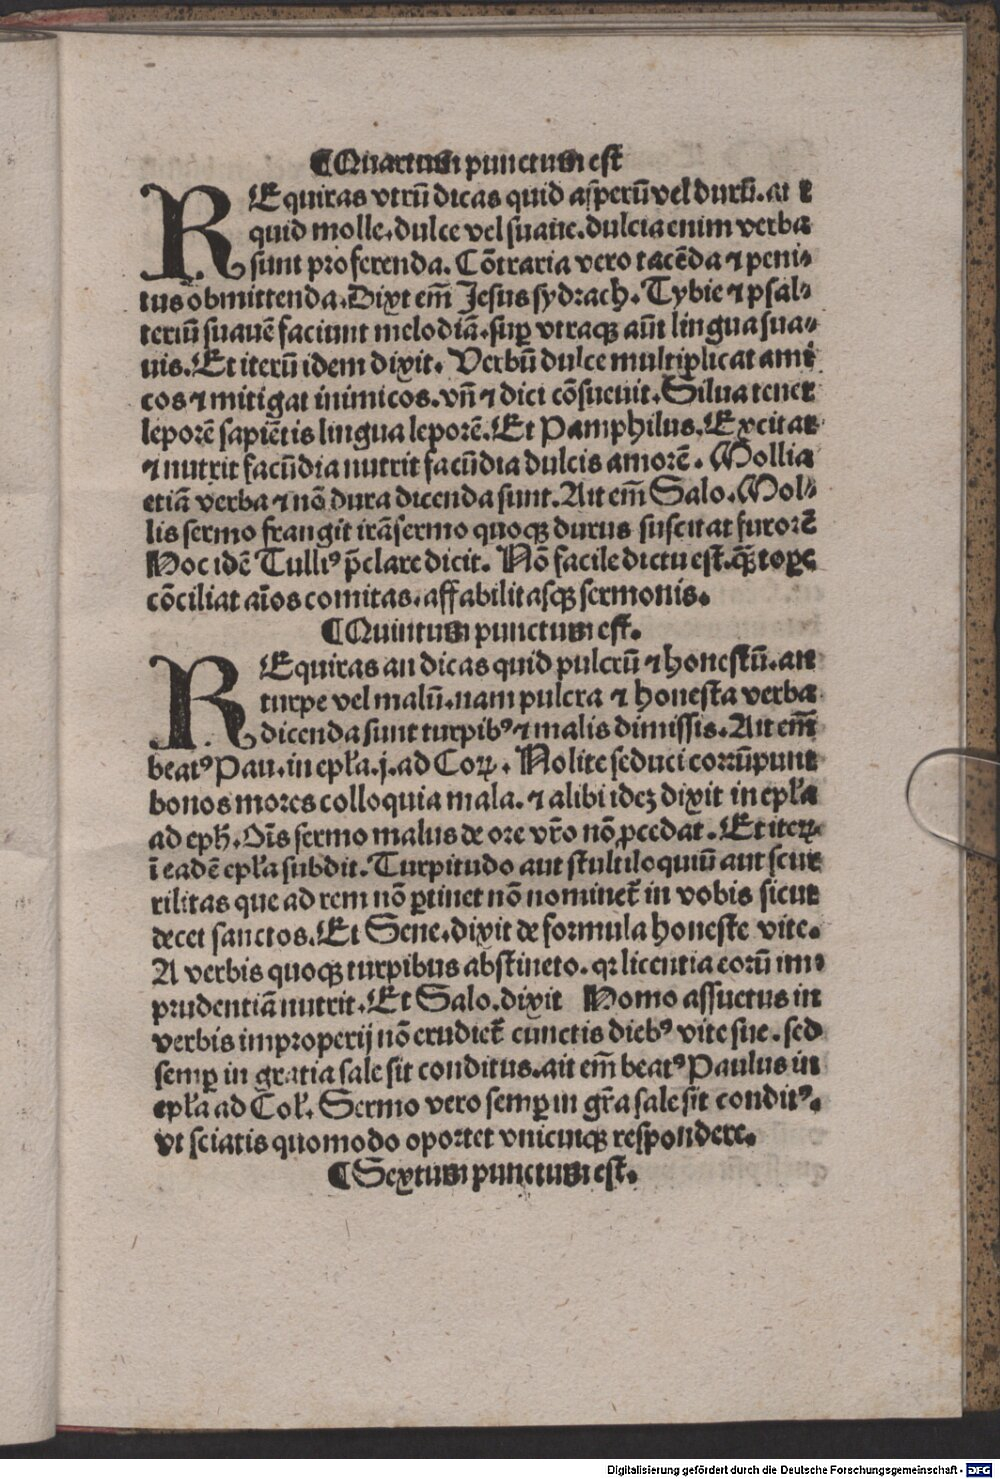 ¶Quartum punctum est
REquiras vtrū dicas quid asperū vel durū. an
quid molle. dulce vel suaue. dulcia enim verba
sunt proferenda. Cōtraria vero tacēda ⁊ peni⸗
tus obmittenda. Dixit em̄ Jesus sydrach. Tybie ⁊ psal⸗
teriū suauē faciunt melodiā. suꝑ vtraqꝫ aūt lingua sua⸗
uis. Et iterū idem dixit. Verbū dulce multiplicat ami
cos ⁊ mitigat inimicos. vn̄ ⁊ dici cōsueuit. Silua tenet
leporē sapiētis lingua leporē. Et Pamphilus. Excitat
⁊ nutrit facūdia nutrit facūdia dulcis amorē. Mollia
etiā verba ⁊ nō dura dicenda sunt. Ait em̄ Salo. Mol⸗
lis sermo frangit irā sermo quoqꝫ durus suscitat furorē
Hoc idē Tulliꝰ p̄clare dicit. Nō facile dictu est. qͣ̄topꝫe
cōciliat aīos comitas. affabilitasqꝫ sermonis.
¶Quintum punctum est.
REquiras an dicas quid pulcrū ⁊ honestū. an
turpe vel malū. nam pulcra ⁊ honesta verba
dicenda sunt turpibꝰ ⁊ malis dimissis. Ait em̄
beatꝰ Pau. in epl'a. j. ad Coꝝ. Nolite seduci corrūpunt
bonos mores colloquia mala. ⁊ alibi ideꝫ dixit in epl'a
ad eph̄. Oīs sermo malus de ore vr̄o nō ꝓcedat. Et iteꝝ
ī eadē epl'a subdit. Turpitudo aut stultiloquiū aut scur
rilitas que ad rem nō ꝑtinet nō nominet̄ in vobis sicut
decet sanctos. Et Sene. dixit de formula honeste vite.
A verbis quoqꝫ turpibus abstineto. qꝛ licentia eorū im⸗
prudentiā nutrit. Et Salo. dixit Homo assuetus in
verbis improperij nō erudiet̄ cunctis diebꝰ vite sue. sed
semꝑ in gratia sale sit conditus. ait em̄ beatꝰ Paulus in
epl'a ad Col'. Sermo vero semꝑ in gr̄a sale sit conditꝰ.
vt sciatis quomodo oportet vnicuiqꝫ respondere.
¶Sextum punctum est.
Digitalisierung gefördert durch die Deutsche Forschungsgemeinschaft - DFG